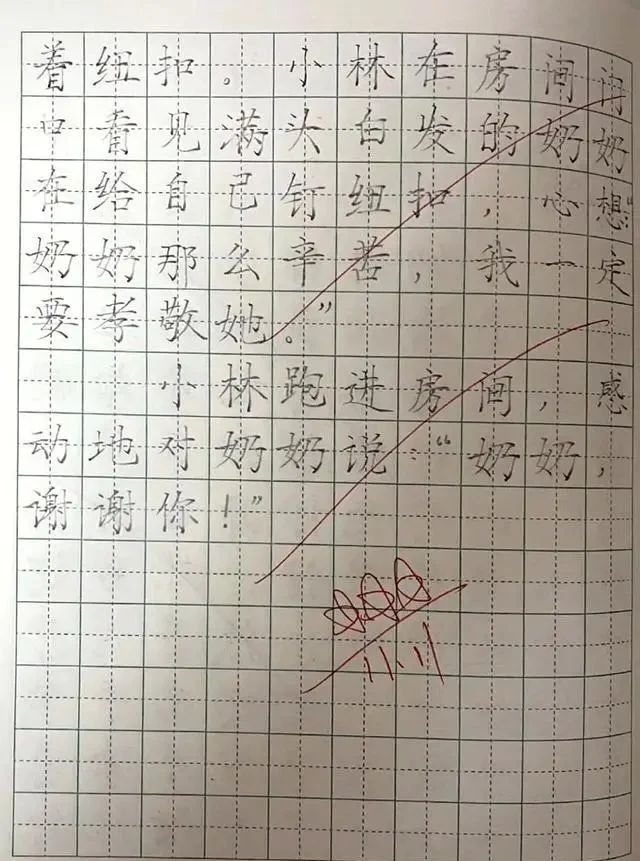 着纽扣。小林在房间门
口看见满头白发的奶奶
在给自己钉纽扣，心想:“
奶奶那么辛苦，我一定
要孝敬她。”
小林跑进房间，感
动地对奶奶说:“奶奶，
谢谢你！”
11.11